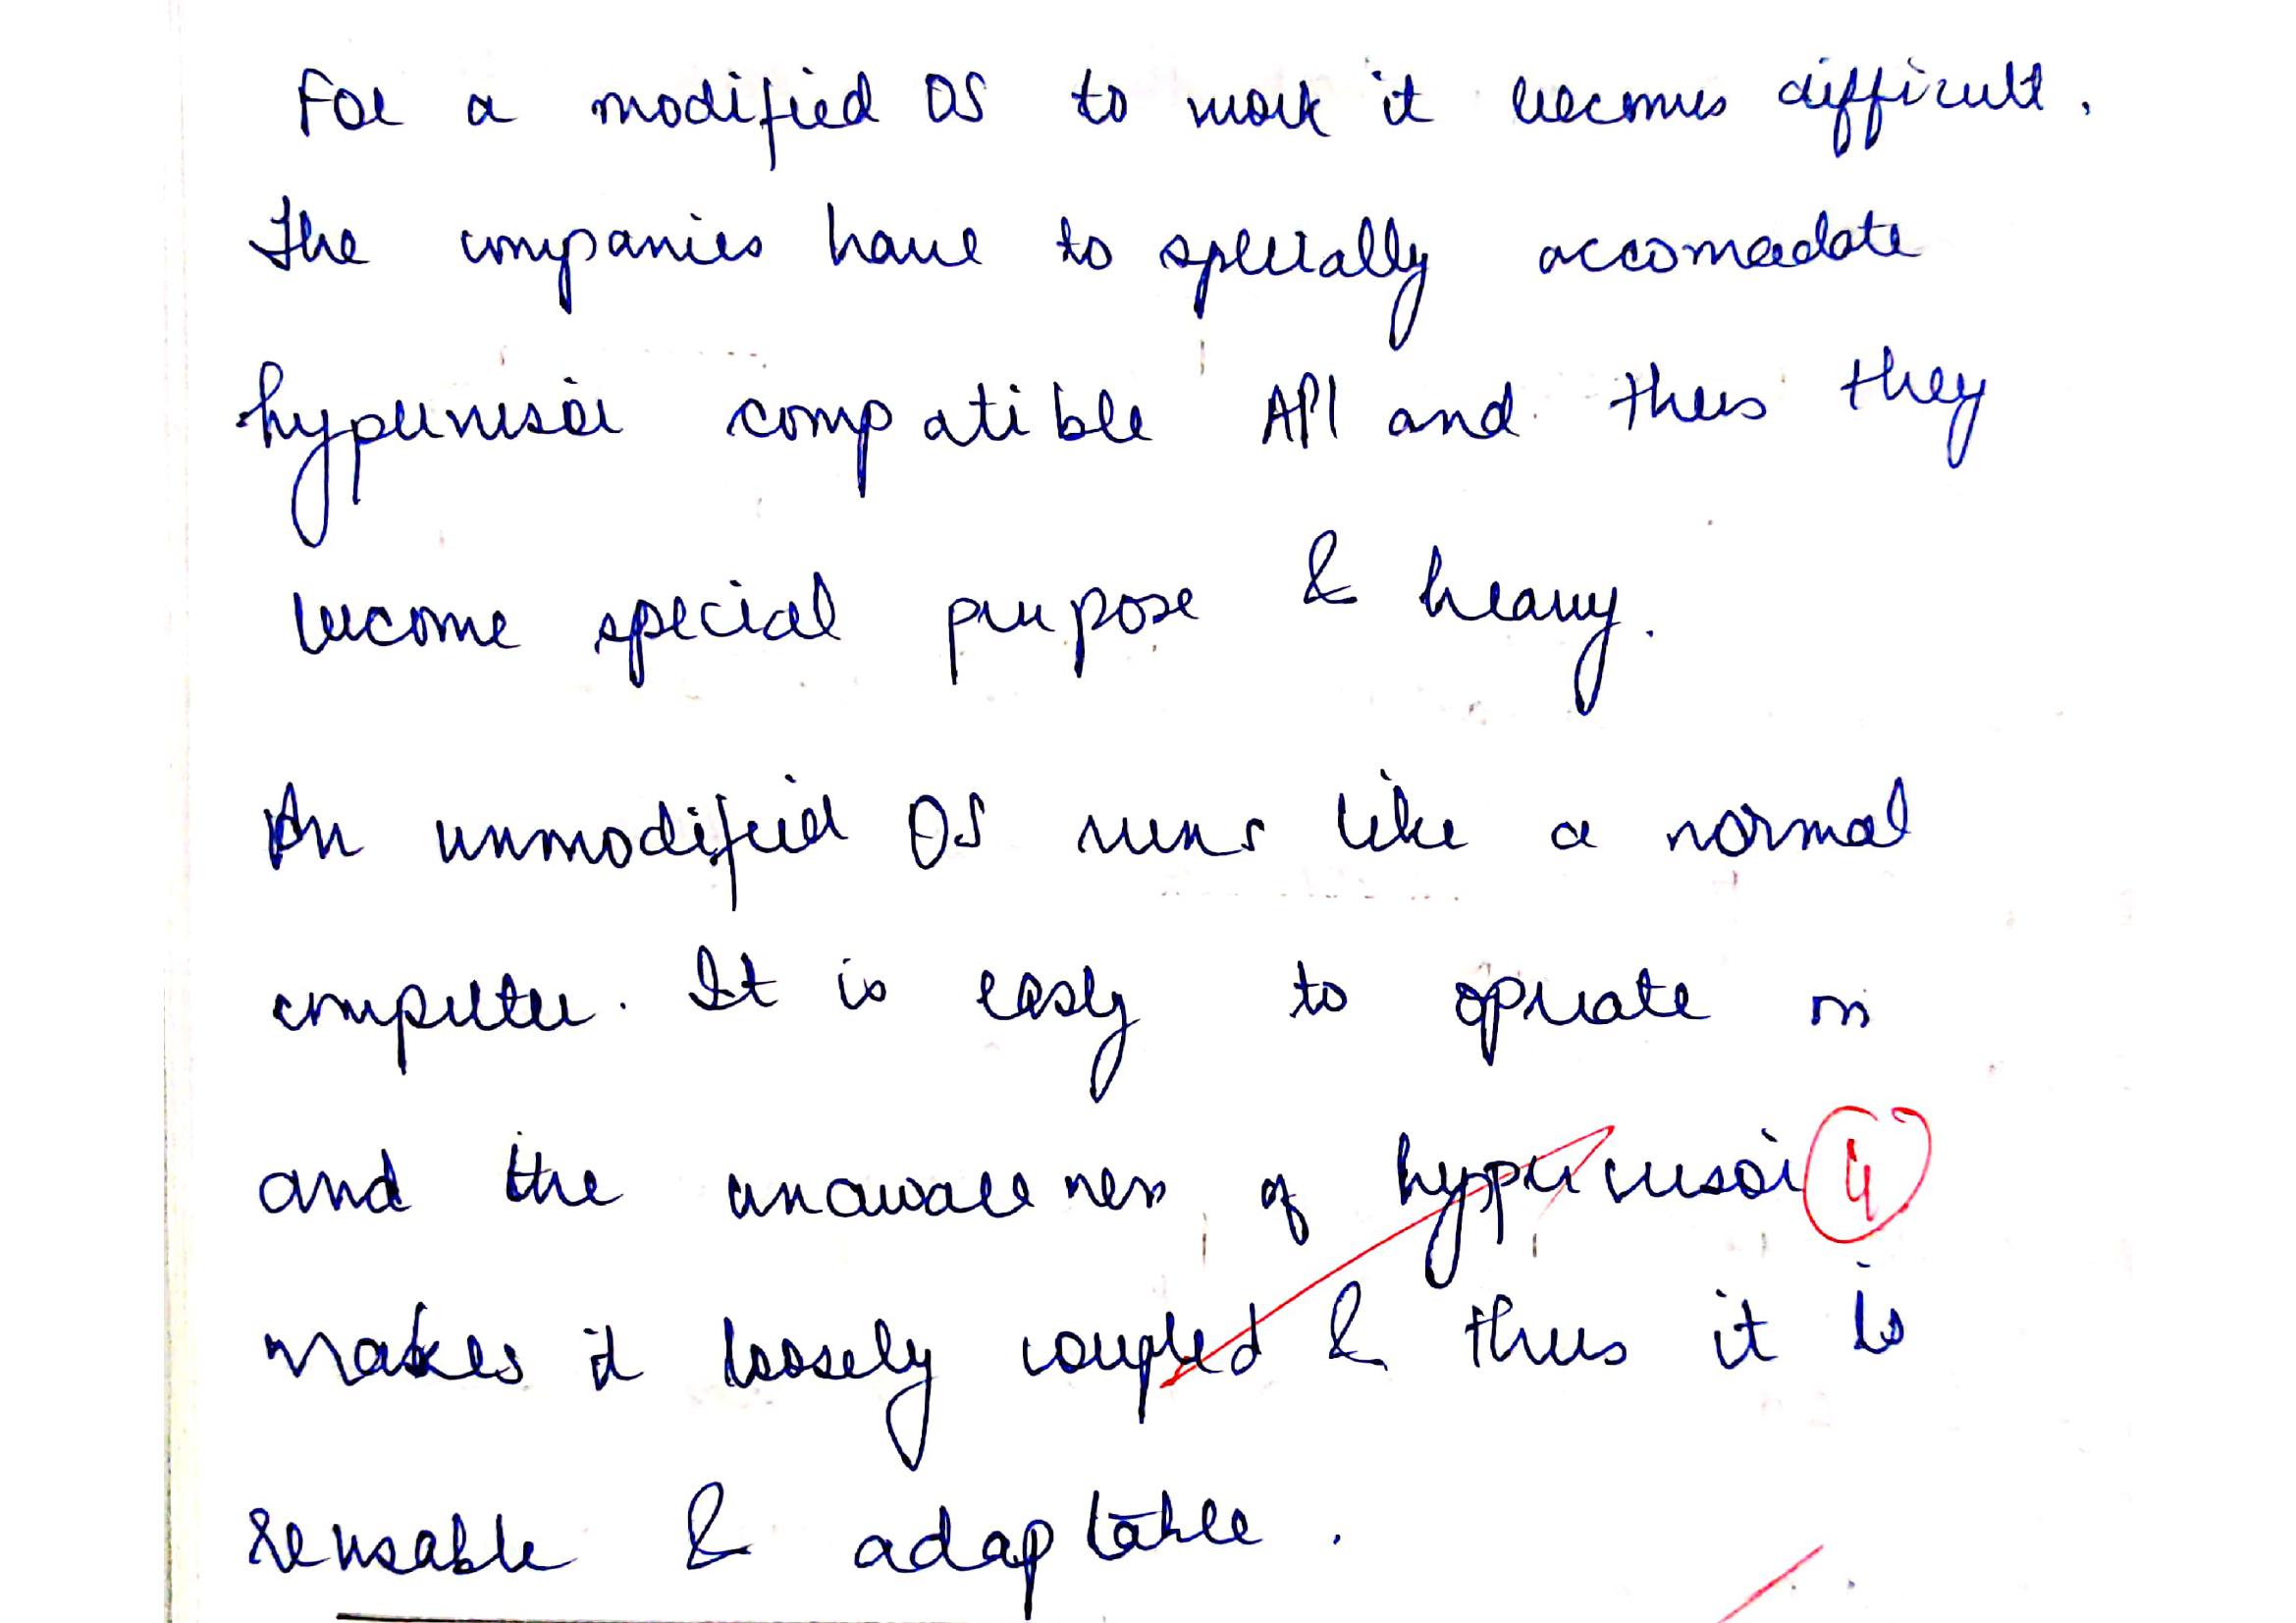 For a modified OS to work it becomes difficult.
The companies have to specially accomodate
hypervisor compatible API and thus they
become special purpose & heavy.
An unmodified OS runs like a normal
computer. It is easy to operate on
and the unawareness of hypervisor 4
makes it loosely coupled & thus it is
reusable & adaptable.